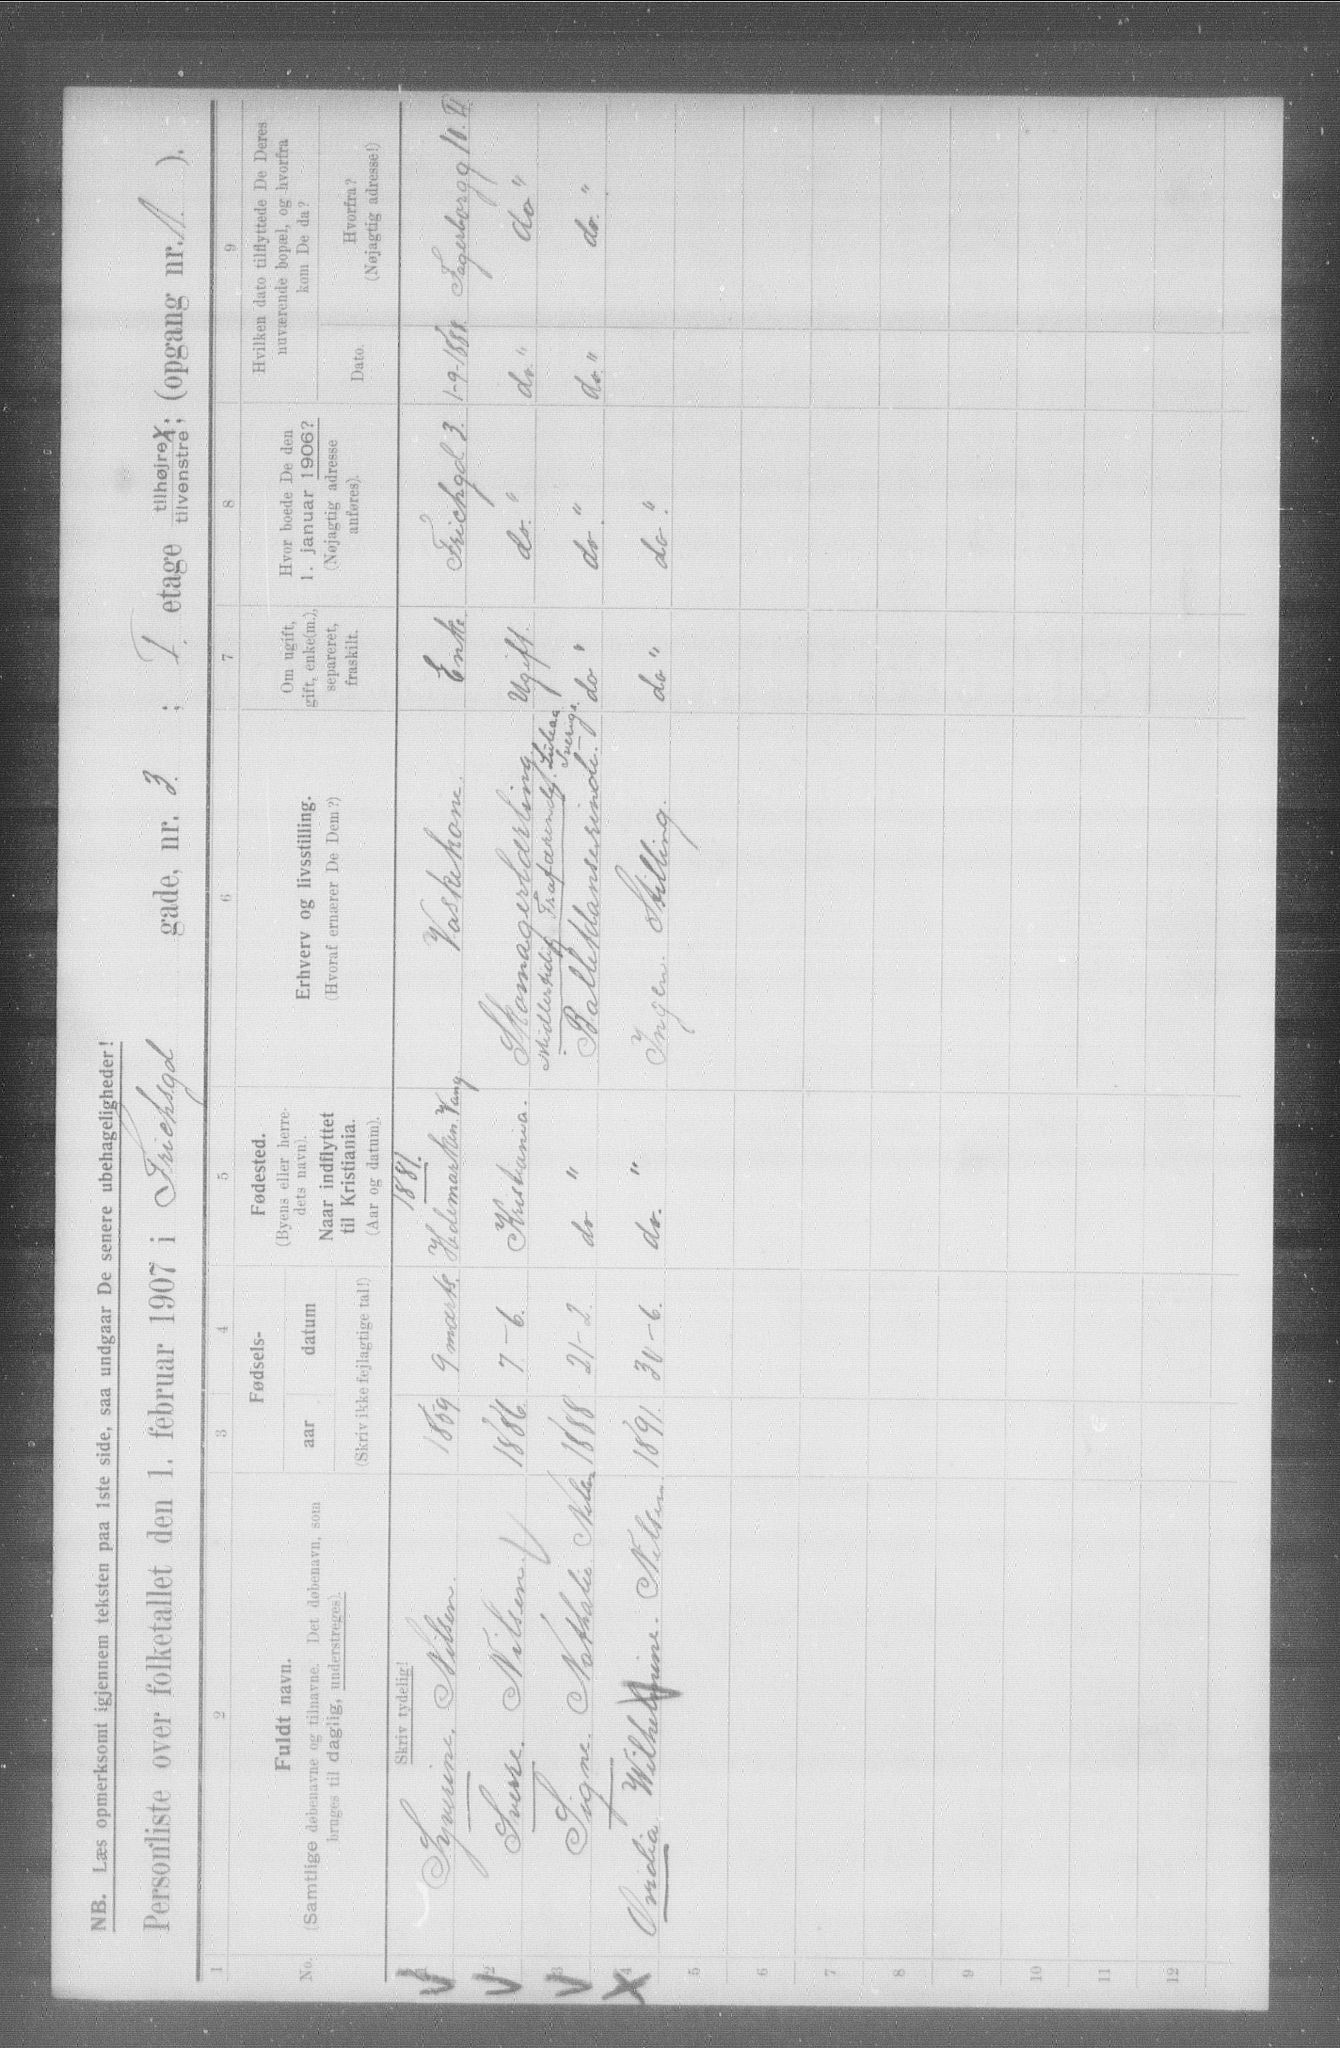 NB. Læs opmerksomt igjennem teksten paa 1ste side, saa undgaar De senere ubehageligheder!
Personliste over folketallet den 1. februar 1907 i Frichsgd gade, nr. 3 ; I. etage tilhøjre X; tilvenstre; (opgang nr. ).
1 2 3 4 5 6 7 8 9
No.
Fuldt navn.
(Samtlige døbenavne og tilnavne. Det døbenavn, som
bruges til daglig, understreges).
Fødsels-
aar datum
(Skriv ikke fejlagtige tal!)
Fødested.
(Byens eller herre-
dets navn).
Naar indflyttet
til Kristiania.
(Aar og datum).
Erhverv og livsstilling.
(Hvoraf ernærer De Dem?)
Om ugift,
gift, enke(m.),
separeret,
fraskilt.
Hvor boede De den
1. januar 1906?
(Nøjagtig adresse
anføres).
Hvilken dato tilflyttede De Deres
nuværende bopæl, og hvorfra
kom De da?
Dato.
Hvorfra?
(Nøjagtig adresse!)
Skriv tydelig!
1881.
1 Syverine. Nilsen. 1859. 9 marts. Hedemarken. Vang. Vaskekone. Enke. Frichgd 3. 1-9-1888. Fagerborgg 10. II
2 Sverre. Nilsen. 1886. 7-6. Kristiania. Skomagerlærling. Ugift. do. " do. " do "
Midlertidig Fraværende. Luleaa
Sverige.
3 Signe. Nathalie Nilsen 1888 21-2. do " Balletdanserinde. do " do " do. " do. "
4 Ovidia Wilhelmine. Nilsen. 1891. 30-6. do. " Ingen. Stilling. do " do "
5
6
7
8
9
10
11
12